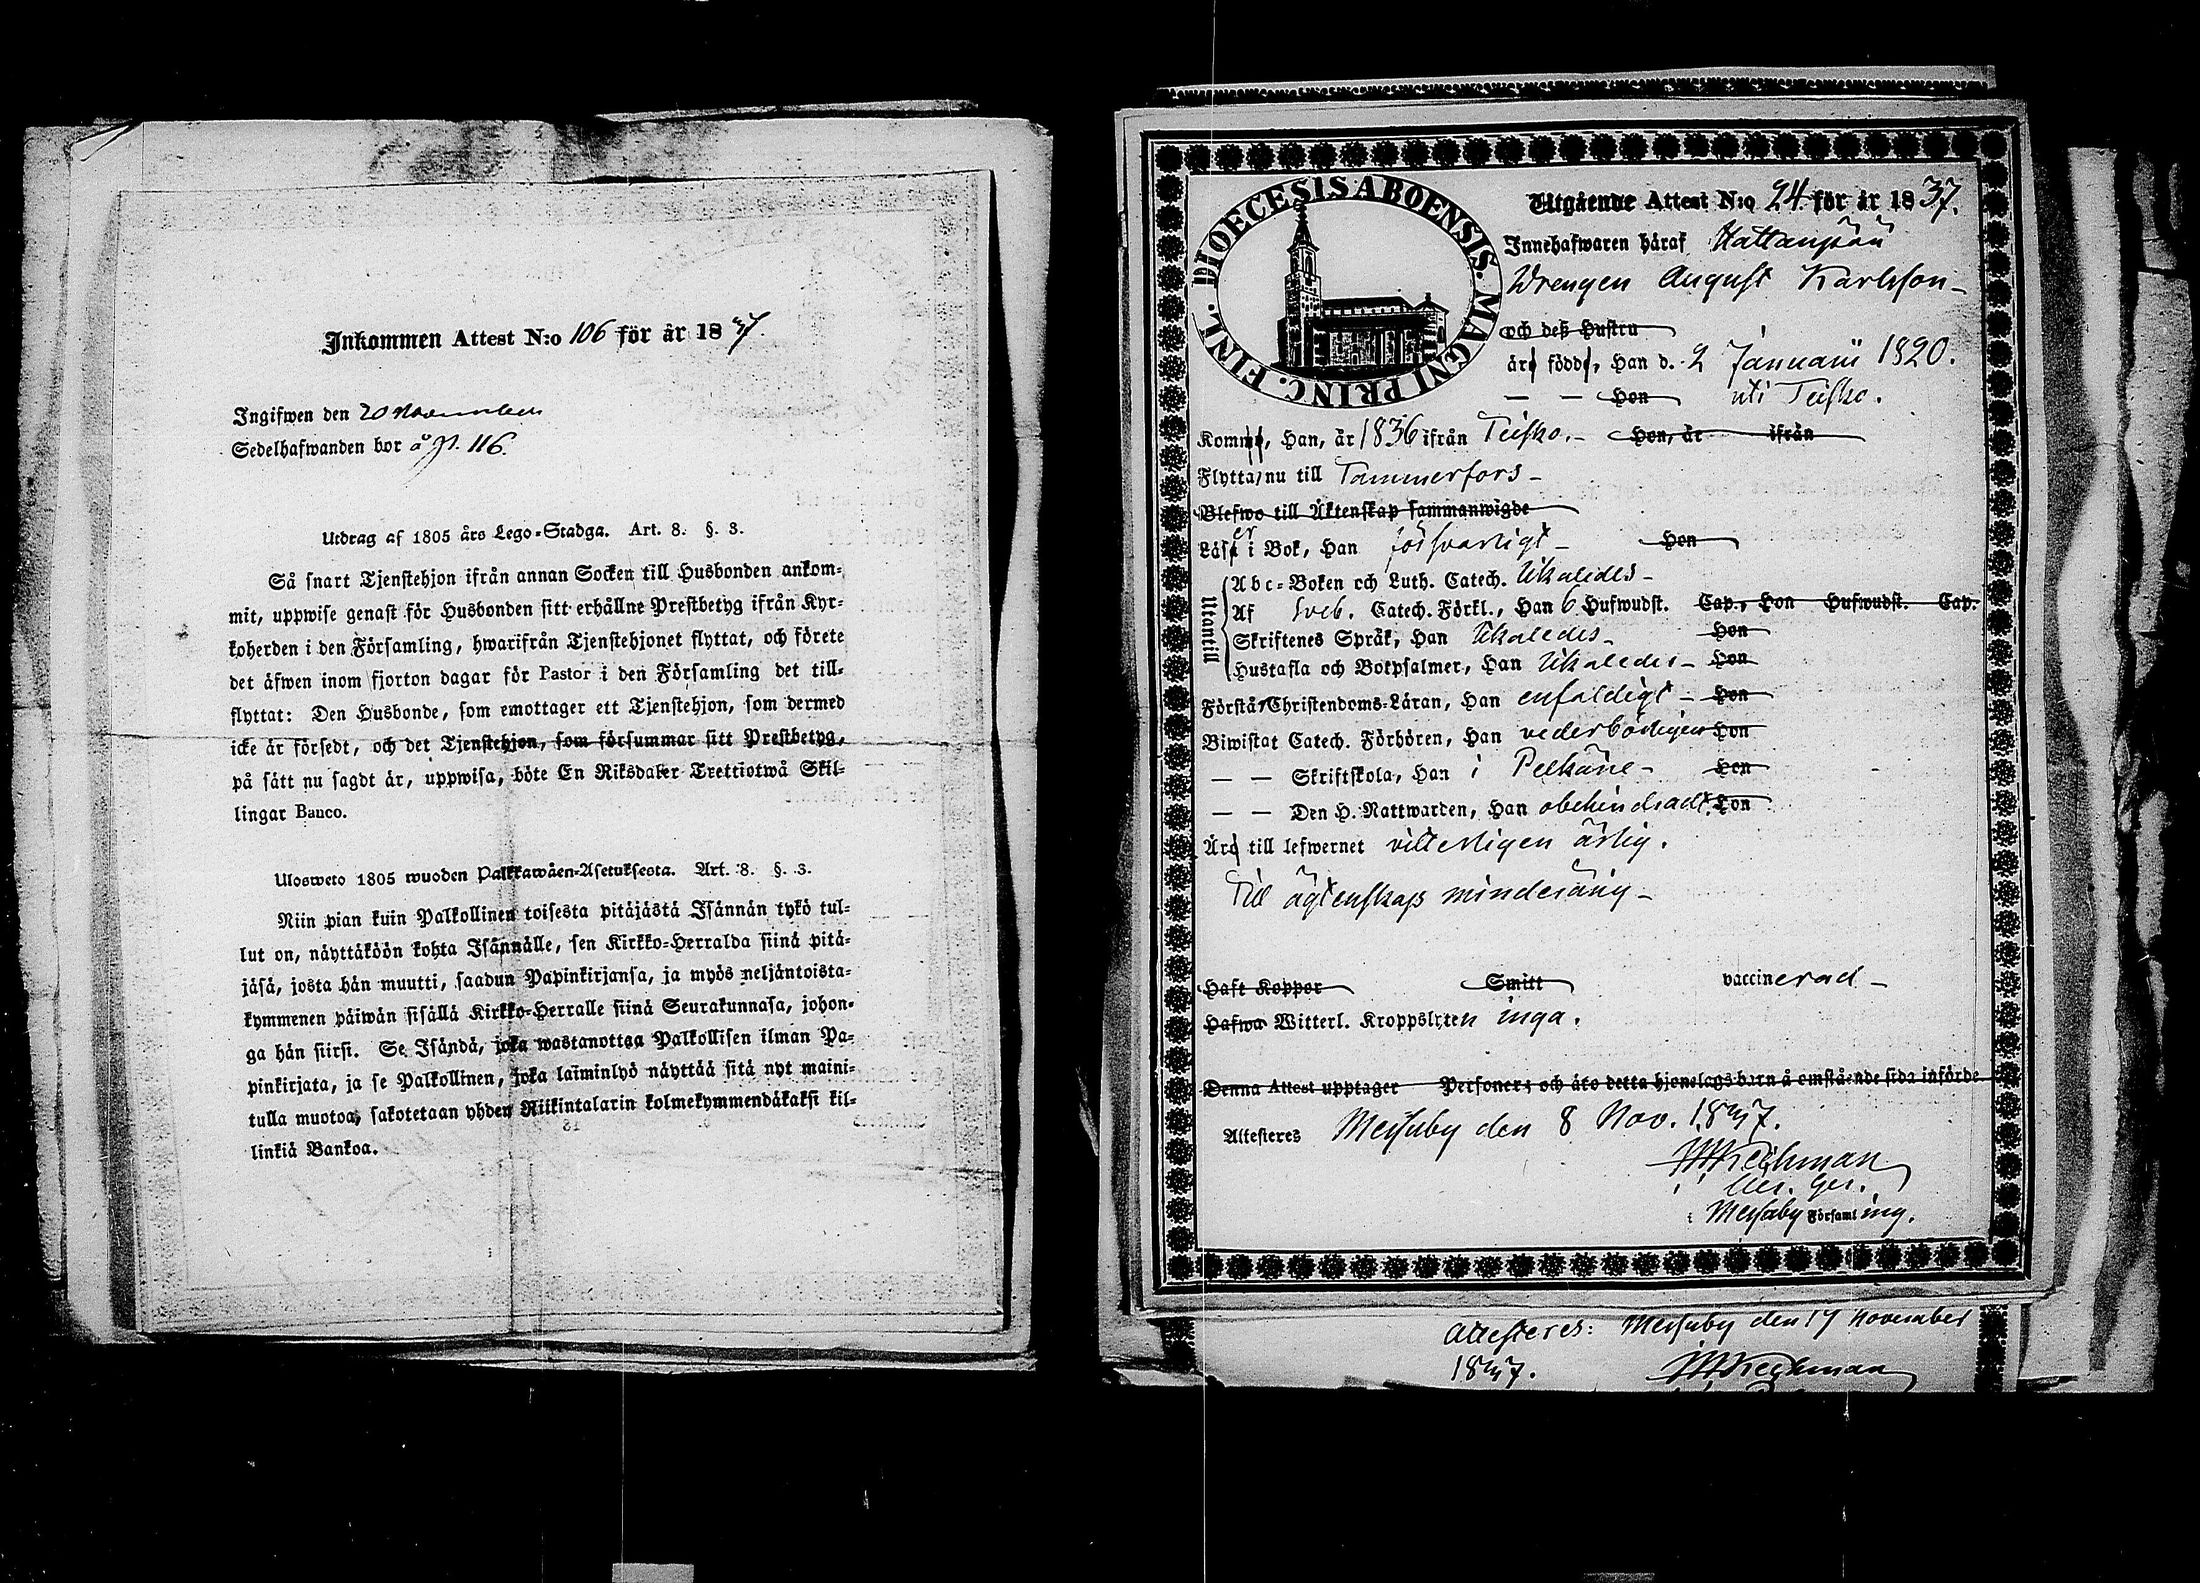 Inkommen Attest N:o 106 för år 1837.
Ingifwen den 20 November
Sedelhafwanden bor å p. 116.
Utdrag af 1805 års Lego-Stadga. Art. 8. §. 3.
Så snart Tjenstehjon ifrån annan Socken till Husbonden ankom-
mit, uppwise genast för Husbonden sitt erhållne Prestbetyg ifrån Kyr-
koherden i den Församling, hwarifrån Tjenstehjonet flyttat, och förete
det äfwen inom fjorton dagar för Pastor i den Församling det till-
flyttat: Den Husbonde, som emottager ett Tjenstehjon, som dermed
icke är försedt, och det Tjenstehjon, som försummar sitt Prestbetyg,
på sätt nu sagdt är, uppwisa, böte En Riksdaler Trettiotwå Skil-
lingar Banco.
Ulosweto 1805 wuoden Palkkawäen-Asetuksesta. Art. 8. §. 3.
Niin pian kuin Palkollinen toisesta pitäjästä Isännän tykö tul-
lut on, näyttäköön kohta Isännälle, sen Kirkko-Herralda siinä pitä-
jäsä, josta hän muutti, saadun Papinkirjansa, ja myös neljäntoista-
kymmenen päiwän sisällä Kirkko-Herralle siinä Seurakunnasa, johon-
ga hän siirsi. Se Isändä, joka wastanottaa Palkollisen ilman Pa-
pinkirjata, ja se Palkollinen, joka laiminlyö näyttää sitä nyt maini-
tulla muotoa, sakotetaan yhden Riikintalarin kolmekymmendäkaksi kil-
linkiä Bankoa.
DIOECESIS ABOENSIS. MAGNI PRINC. FINL.
Utgående Attest N:o 24 för år 1837.
Innehafwaren häraf Hattanpää
Drengen August Karlsson
och deß Hustru
äro födde, Han d. 2 Januarii 1820.
— — Hon uti Teisko.
Komne, Han, år 1836 ifrån Teisko. Hon, år ifrån
Flytta nu till Tammerfors
Blefwo till Äktenskap sammanwigde
Läser i Bok, Han försvarligt Hon
Utantill
Abc-Boken och Luth. Catech. likaledes
Af Sveb. Catech. Förkl., Han 6 Hufwudst. Cap., Hon Hufwudst. Cap.
Skriftenes Språk, Han likaledes Hon
Hustafla och Bokpsalmer, Han likaledes Hon
Förstår Christendoms-Läran, Han enfaldigt Hon
Biwistat Catech. Förhören, Han vederbörligen Hon
— — Skriftskola, Han i Pelkäne Hon
— — Den H. Nattwarden, Han obehindradt. Hon
Äro till lefwernet vitterligen ärlig.
Till ägtenskap minderårig
Haft Koppor Smitt vaccinerad
Hafwa Witterl. Kroppslyten inga.
Denna Attest upptager Personer och äro detta hjonelags barn å omstående sida införde
Attesteres Messuby den 8 Nov. 1837.
i Messuby Församling.
Attesteres: Messuby den 17 November
1837.